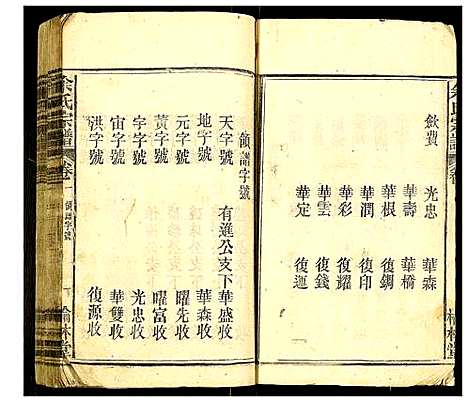 余氏宗譜
卷
斂費
光忠 華森
華壽 華橋
華根 復錫
華潤 復印
華彩 復耀
華雲 復錢
華定 復運
領譜字號
天字號 有進公支下華盛收
地字號 華森收
元字號 曜先收
黃字號 曜富收
宇字號 光忠收
宙字號 華雙收
洪字號 復源收
余氏宗譜
卷一
領譜字號
榆林堂